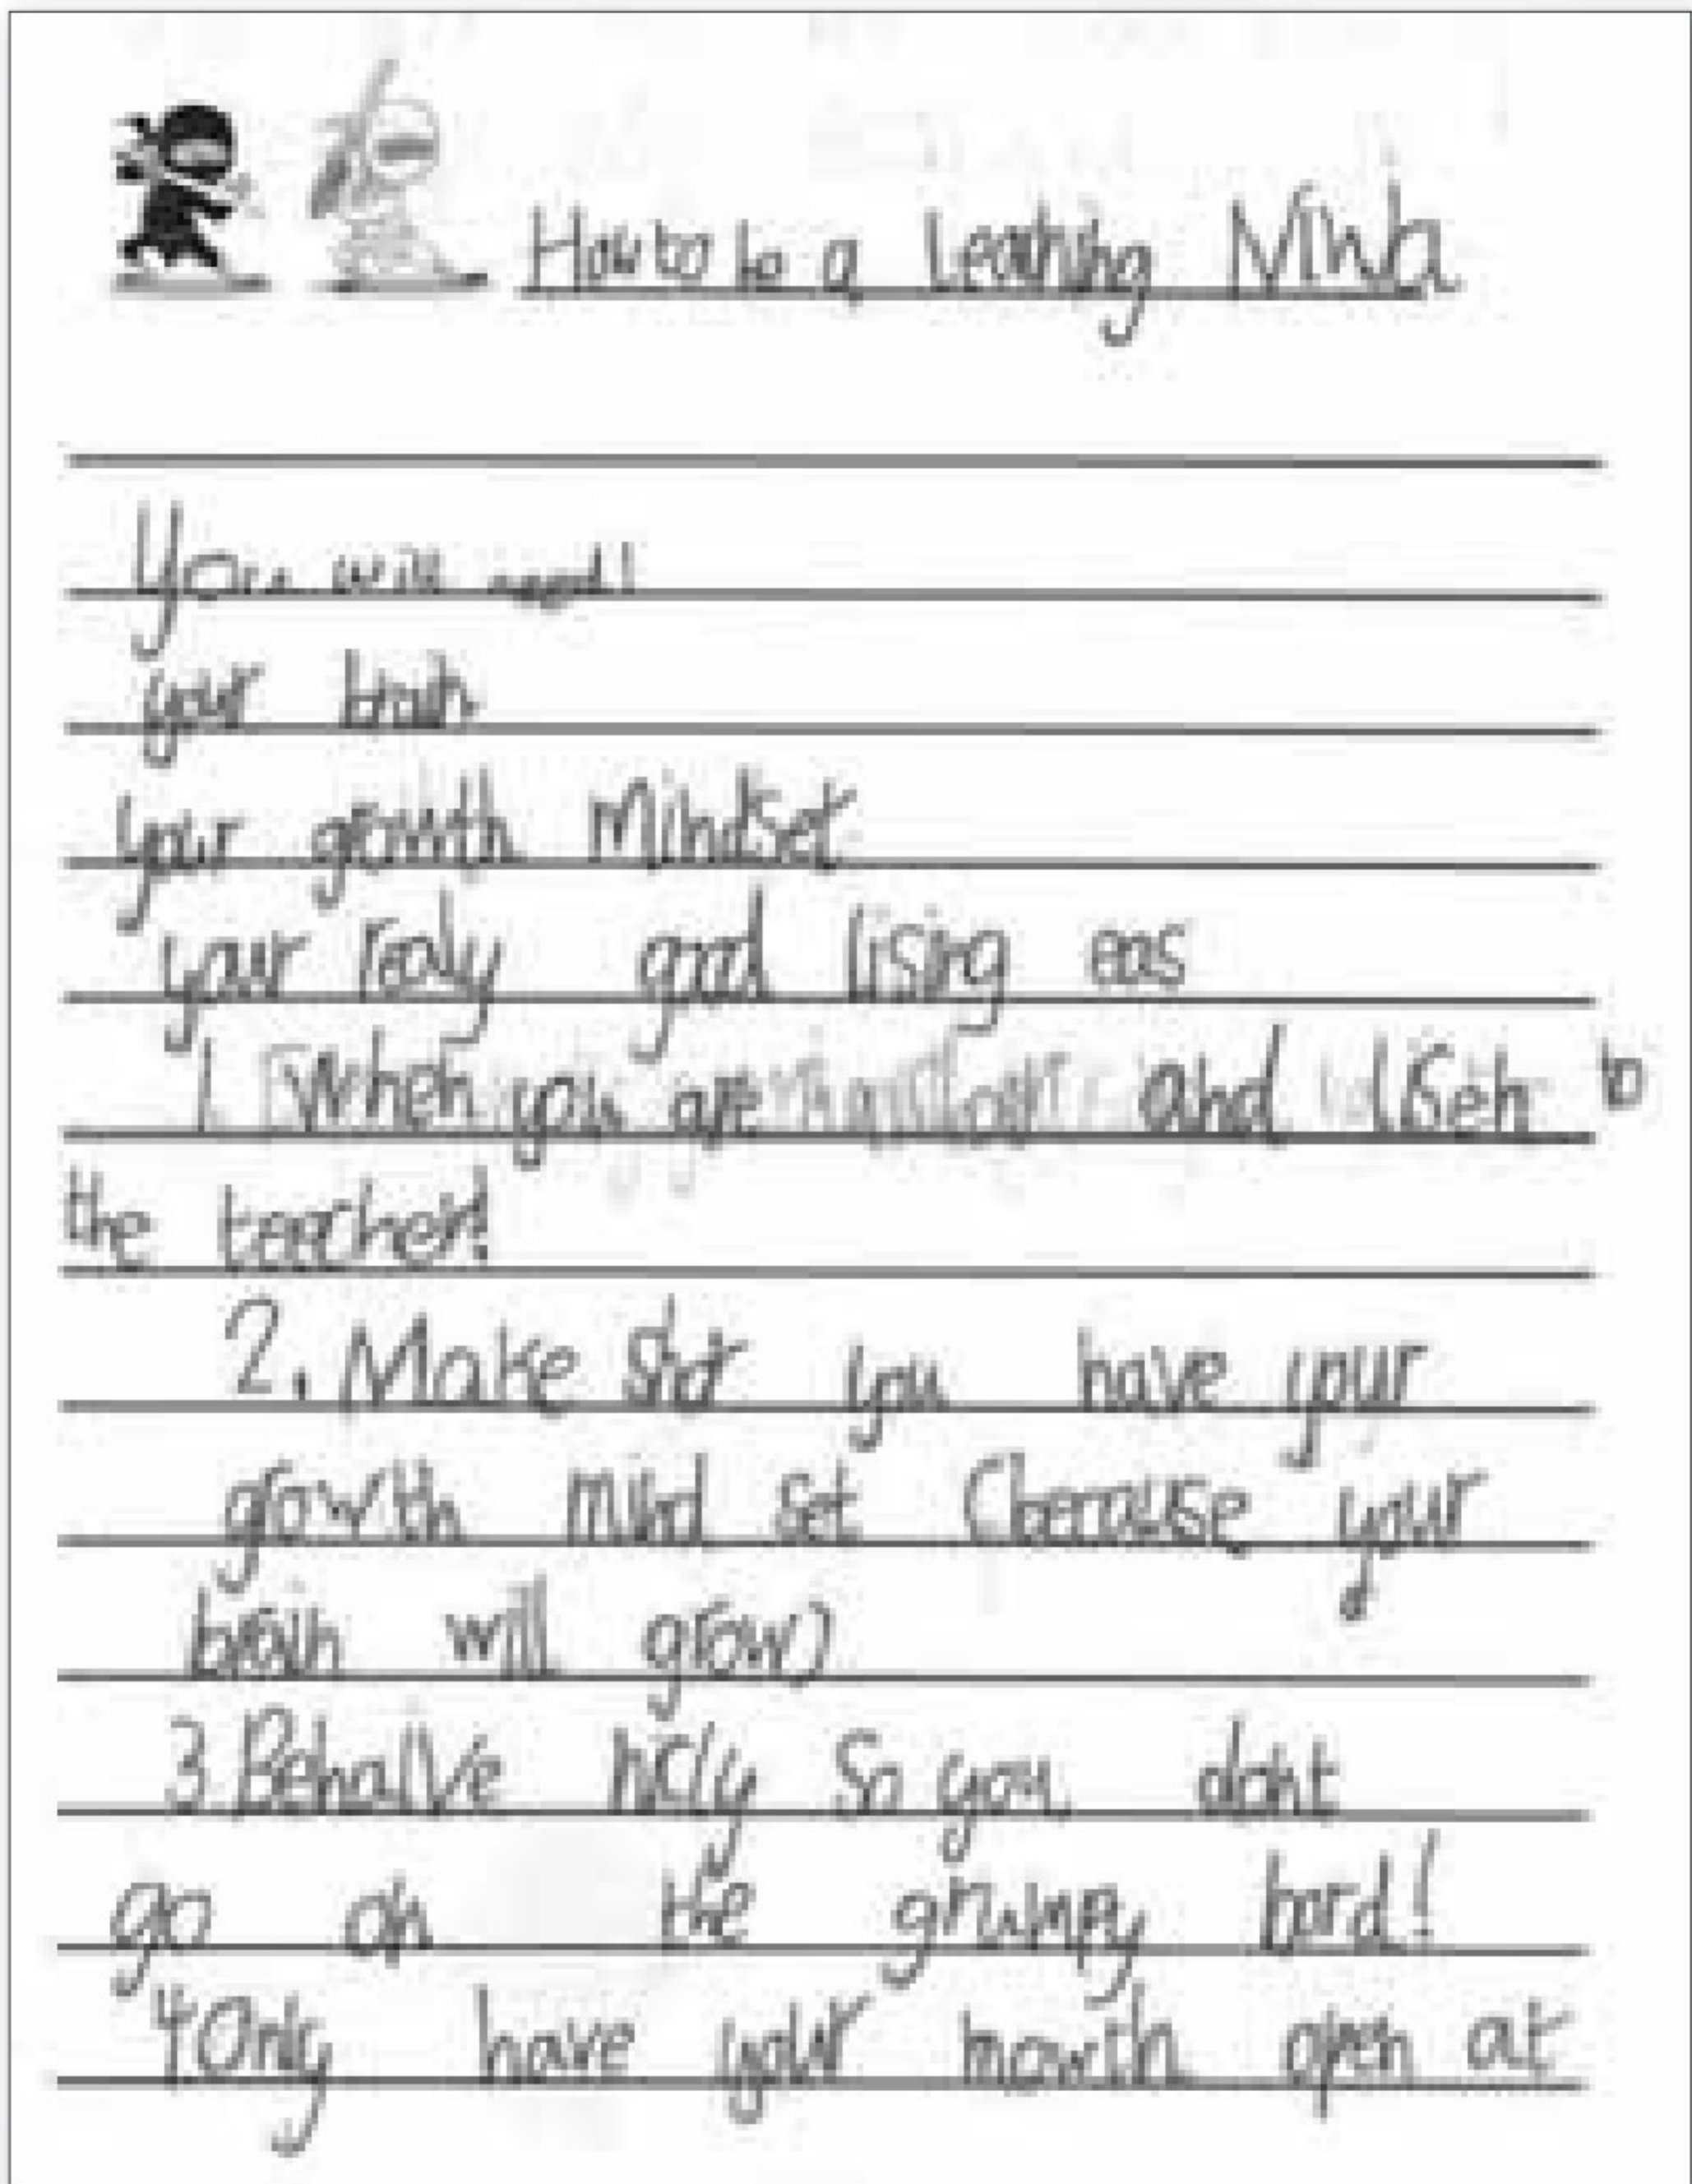 How to be a Learning Ninja
You will need!
your brain
your growth Mindset
your realy good lising eas
1 When you are and lisen to
the teacher!
2. Make shor you have your
growth mind set (because your
brain will grow)
3 Behaive nicly so you dont
go on the grumpy bord!
4 Only have your mowth open at